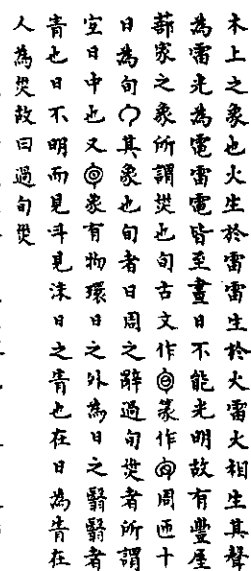 木上之象也火生於雷雷生於火雷火相生其聲
為雷光為電雷電皆至晝日不能光明故有豐屋
蔀家之象所謂烖也旬古文作篆作周帀十
日為旬其象也旬者日周之辭過旬烖者所謂
空日中也又象有物環日之外為日之翳翳者
眚也日不明而見斗見沬日之眚也在日為眚在
人為烖故曰過旬烖